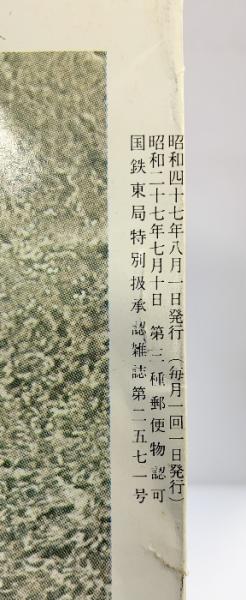 昭和四十七年八月一日発行（毎月一回一日発行）
昭和二十七年七月十日　第三種郵便物認可
国鉄東局特別扱承認雑誌第二五七一号